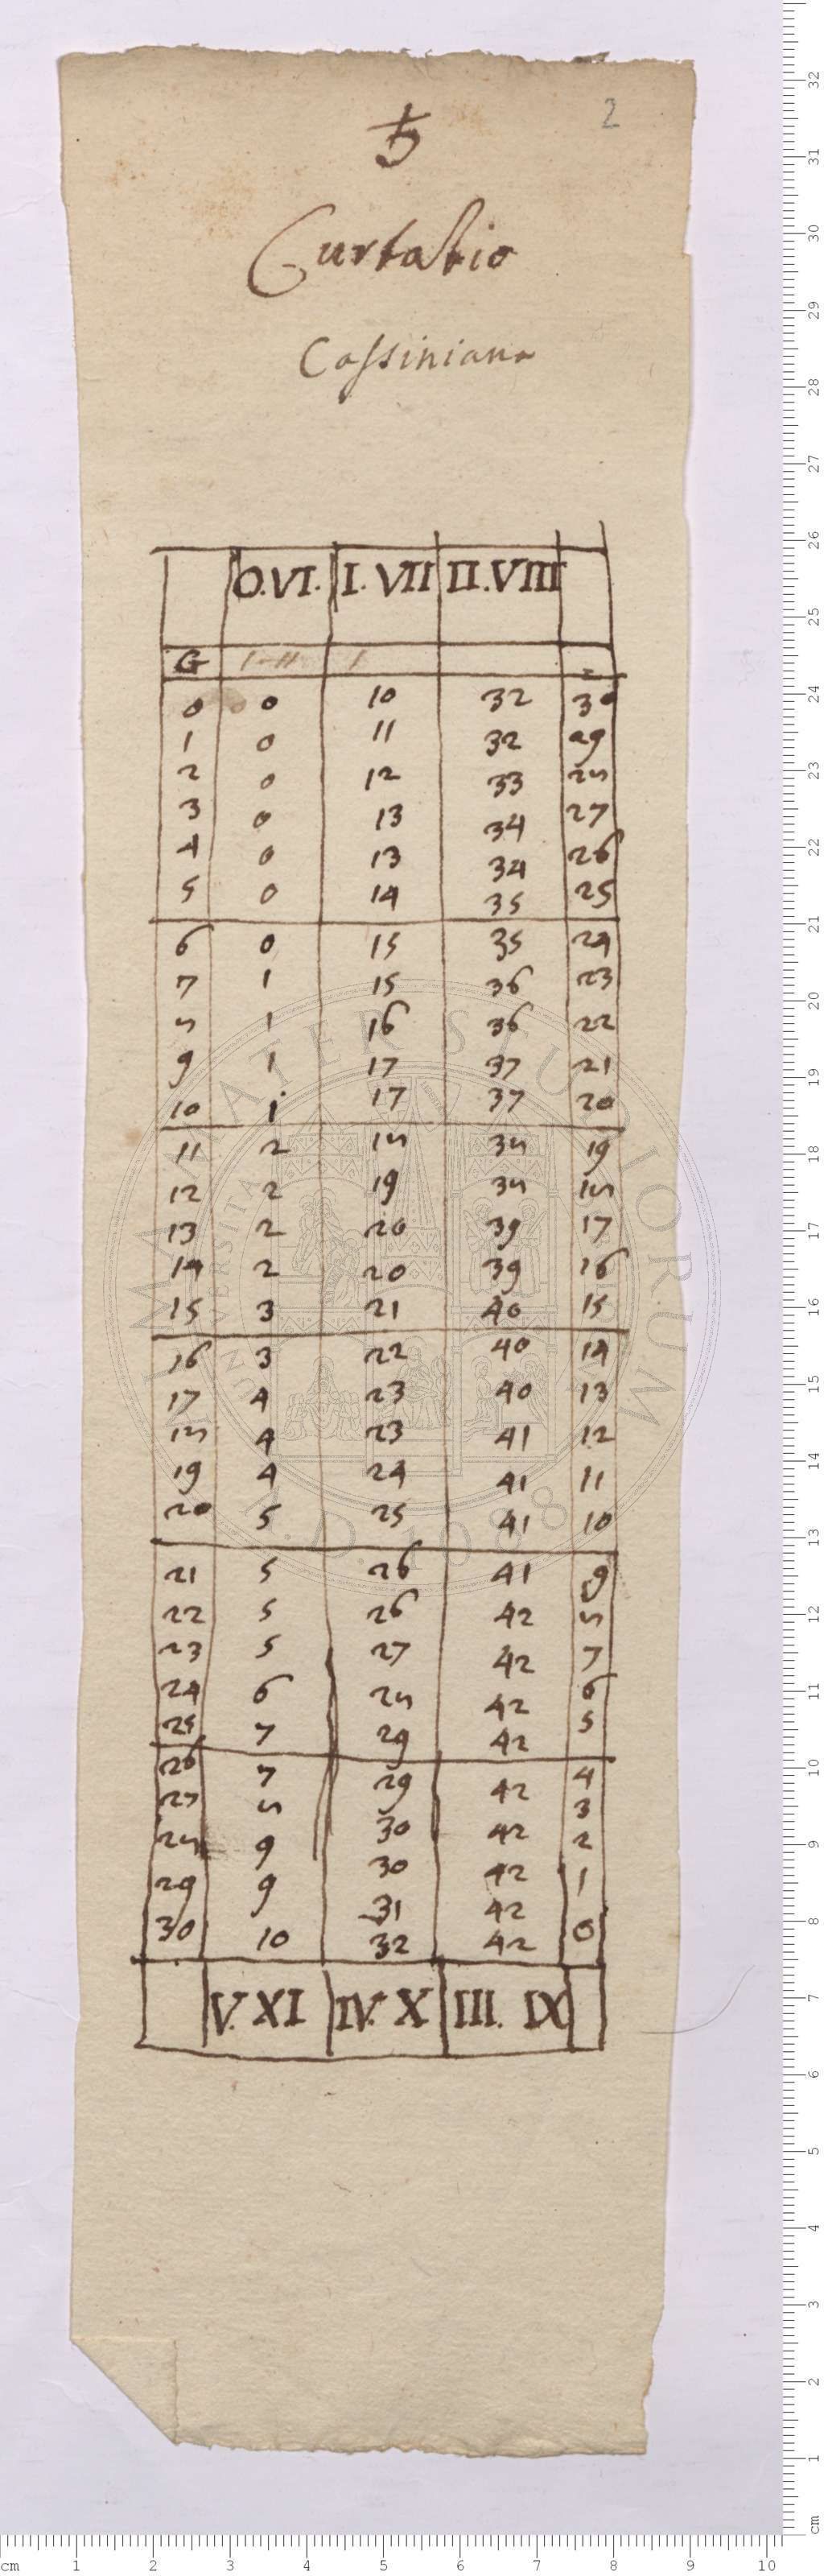 2
♄
Curtatio
Cassiniana
O.VI. I. VII II.VIII
G
0 0 10 32 30
1 0 11 32 29
2 0 12 33 28
3 0 13 34 27
4 0 13 34 26
5 0 14 35 25
6 0 15 35 24
7 1 15 36 23
8 1 16 36 22
9 1 17 37 21
10 1 17 37 20
11 2 18 38 19
12 2 19 38 18
13 2 20 39 17
14 2 20 39 16
15 3 21 40 15
16 3 22 40 14
17 4 23 40 13
18 4 23 41 12
19 4 24 41 11
20 5 25 41 10
21 5 26 41 9
22 5 26 42 8
23 5 27 42 7
24 6 28 42 6
25 7 29 42 5
26 7 29 42 4
27 8 30 42 3
28 9 30 42 2
29 9 31 42 1
30 10 32 42 0
V. XI IV. X III. IX